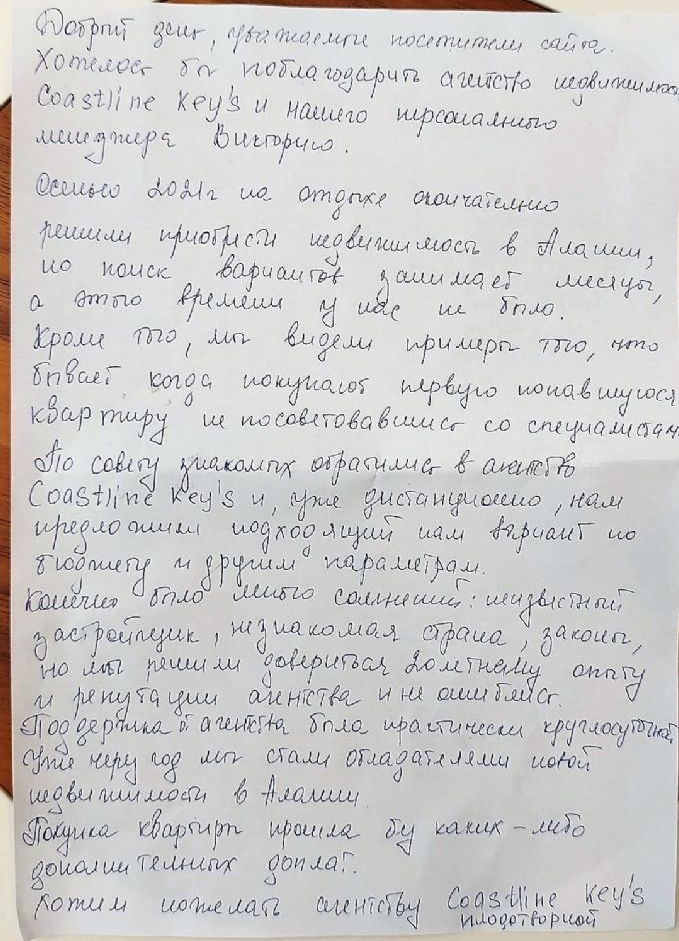 Добрый день, уважаемые посетители сайта.
Хотелось бы поблагодарить агентство недвижимос
Coastline Key's и нашего персонального
менеджера Викторию.
Осенью 2021г на отдыхе окончательно
решили приобрести недвижимость в Алании,
но поиск вариантов занимает месяцы,
а этого времени у нас не было.
Кроме того, мы видели примеры того, что
бывает когда покупают первую попавшуюся
квартиру не посоветовавшись со специалистам
По совету знакомых обратились в агентство
Coastline Key's и, уже дистанционно, нам
предложили подходящий нам вариант по
бюджету и другим параметрам.
Конечно было много сомнений: неизвестный
застройщик, незнакомая страна, законы,
но мы решили довериться 20летнему опыту
и репутации агентства и не ошиблись.
Поддержка агентства была практически круглосуточной
Уже через год мы стали обладателями новой
недвижимости в Алании.
Покупка квартиры прошла без каких-либо
дополнительных доплат.
Хотим пожелать агентству Coastline Key's
плодотворной